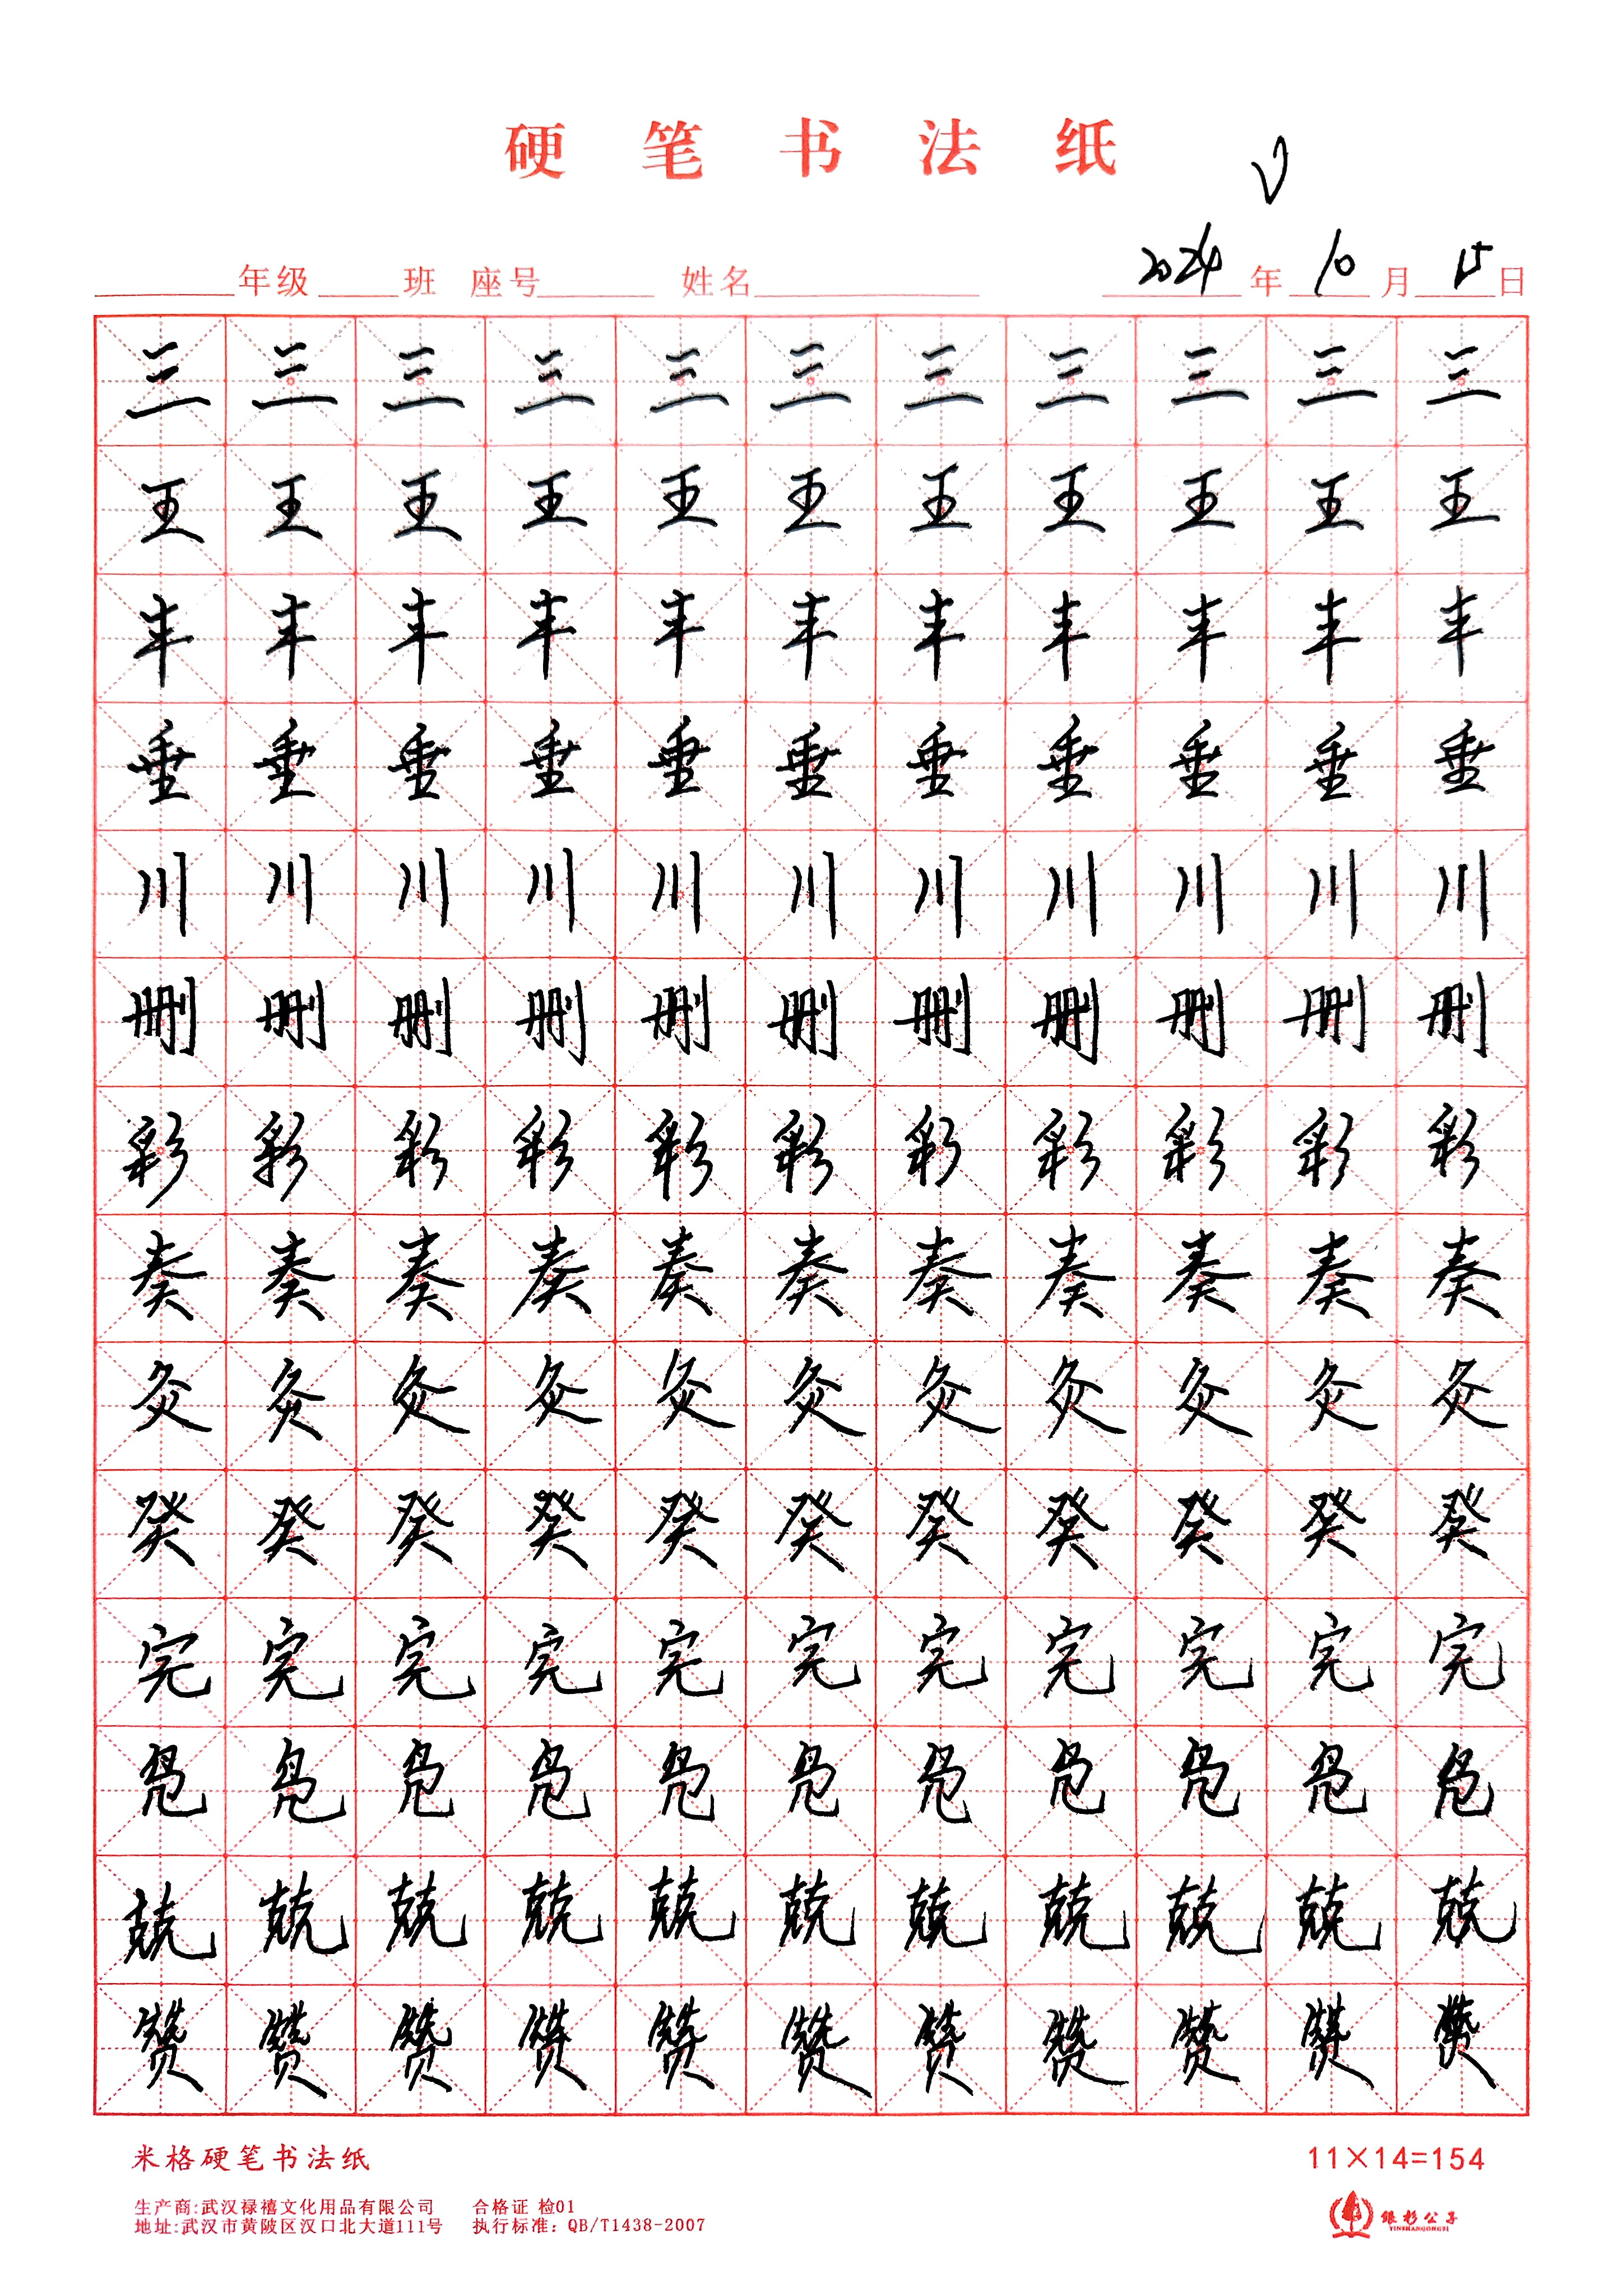 硬笔书法纸
年级 班 座号 姓名 2024 年 10 月 15 日
三三三三三三三三三三三
王王王王王王王王王王王
丰丰丰丰丰丰丰丰丰丰丰
垂垂垂垂垂垂垂垂垂垂垂
川川川川川川川川川川川
删删删删删删删删删删删
彩彩彩彩彩彩彩彩彩彩彩
奏奏奏奏奏奏奏奏奏奏奏
灸灸灸灸灸灸灸灸灸灸灸
癸癸癸癸癸癸癸癸癸癸癸
完完完完完完完完完完完
凫凫凫凫凫凫凫凫凫凫凫
兢兢兢兢兢兢兢兢兢兢兢
赞赞赞赞赞赞赞赞赞赞赞
米格硬笔书法纸 11×14=154
生产商:武汉禄禧文化用品有限公司 合格证 检01
地址:武汉市黄陂区汉口北大道111号 执行标准: QB/T1438-2007
银杉公子
YINSHANGONGZI